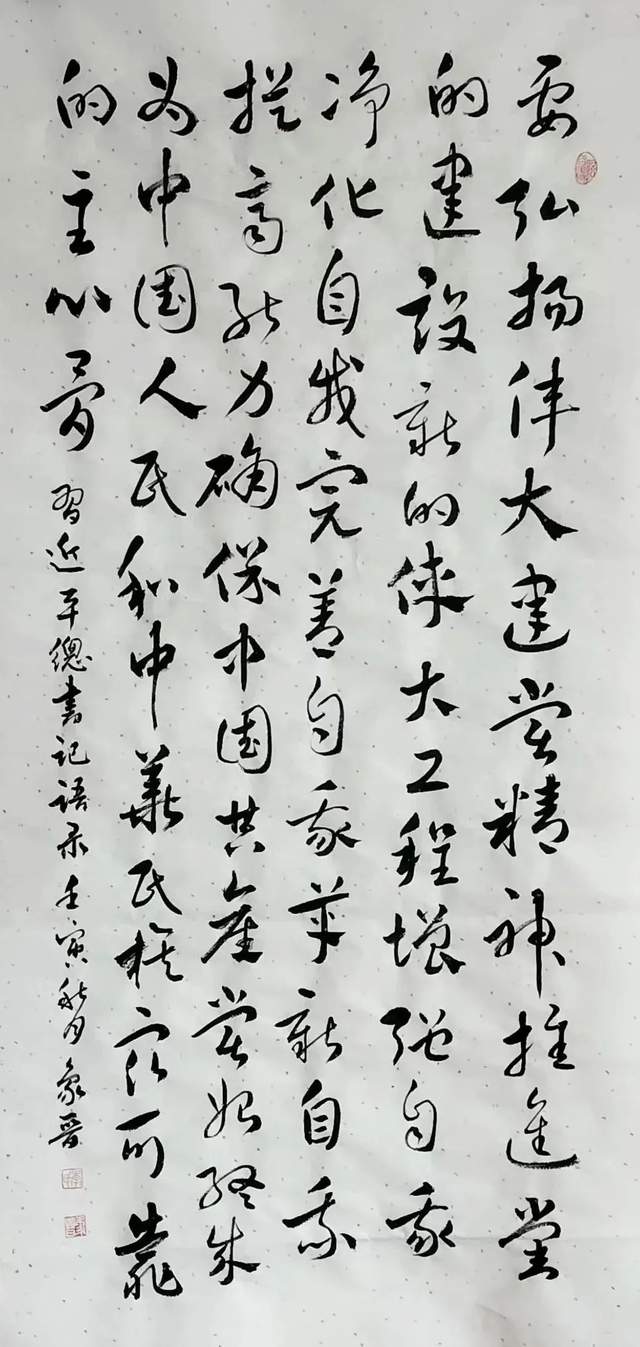 要弘扬伟大建党精神推进党
的建设新的伟大工程增强自我
净化自我完善自我革新自我
提高能力确保中国共产党始终成
为中国人民和中华民族最可靠
的主心骨
習近平總書记語录壬寅秋月象晋